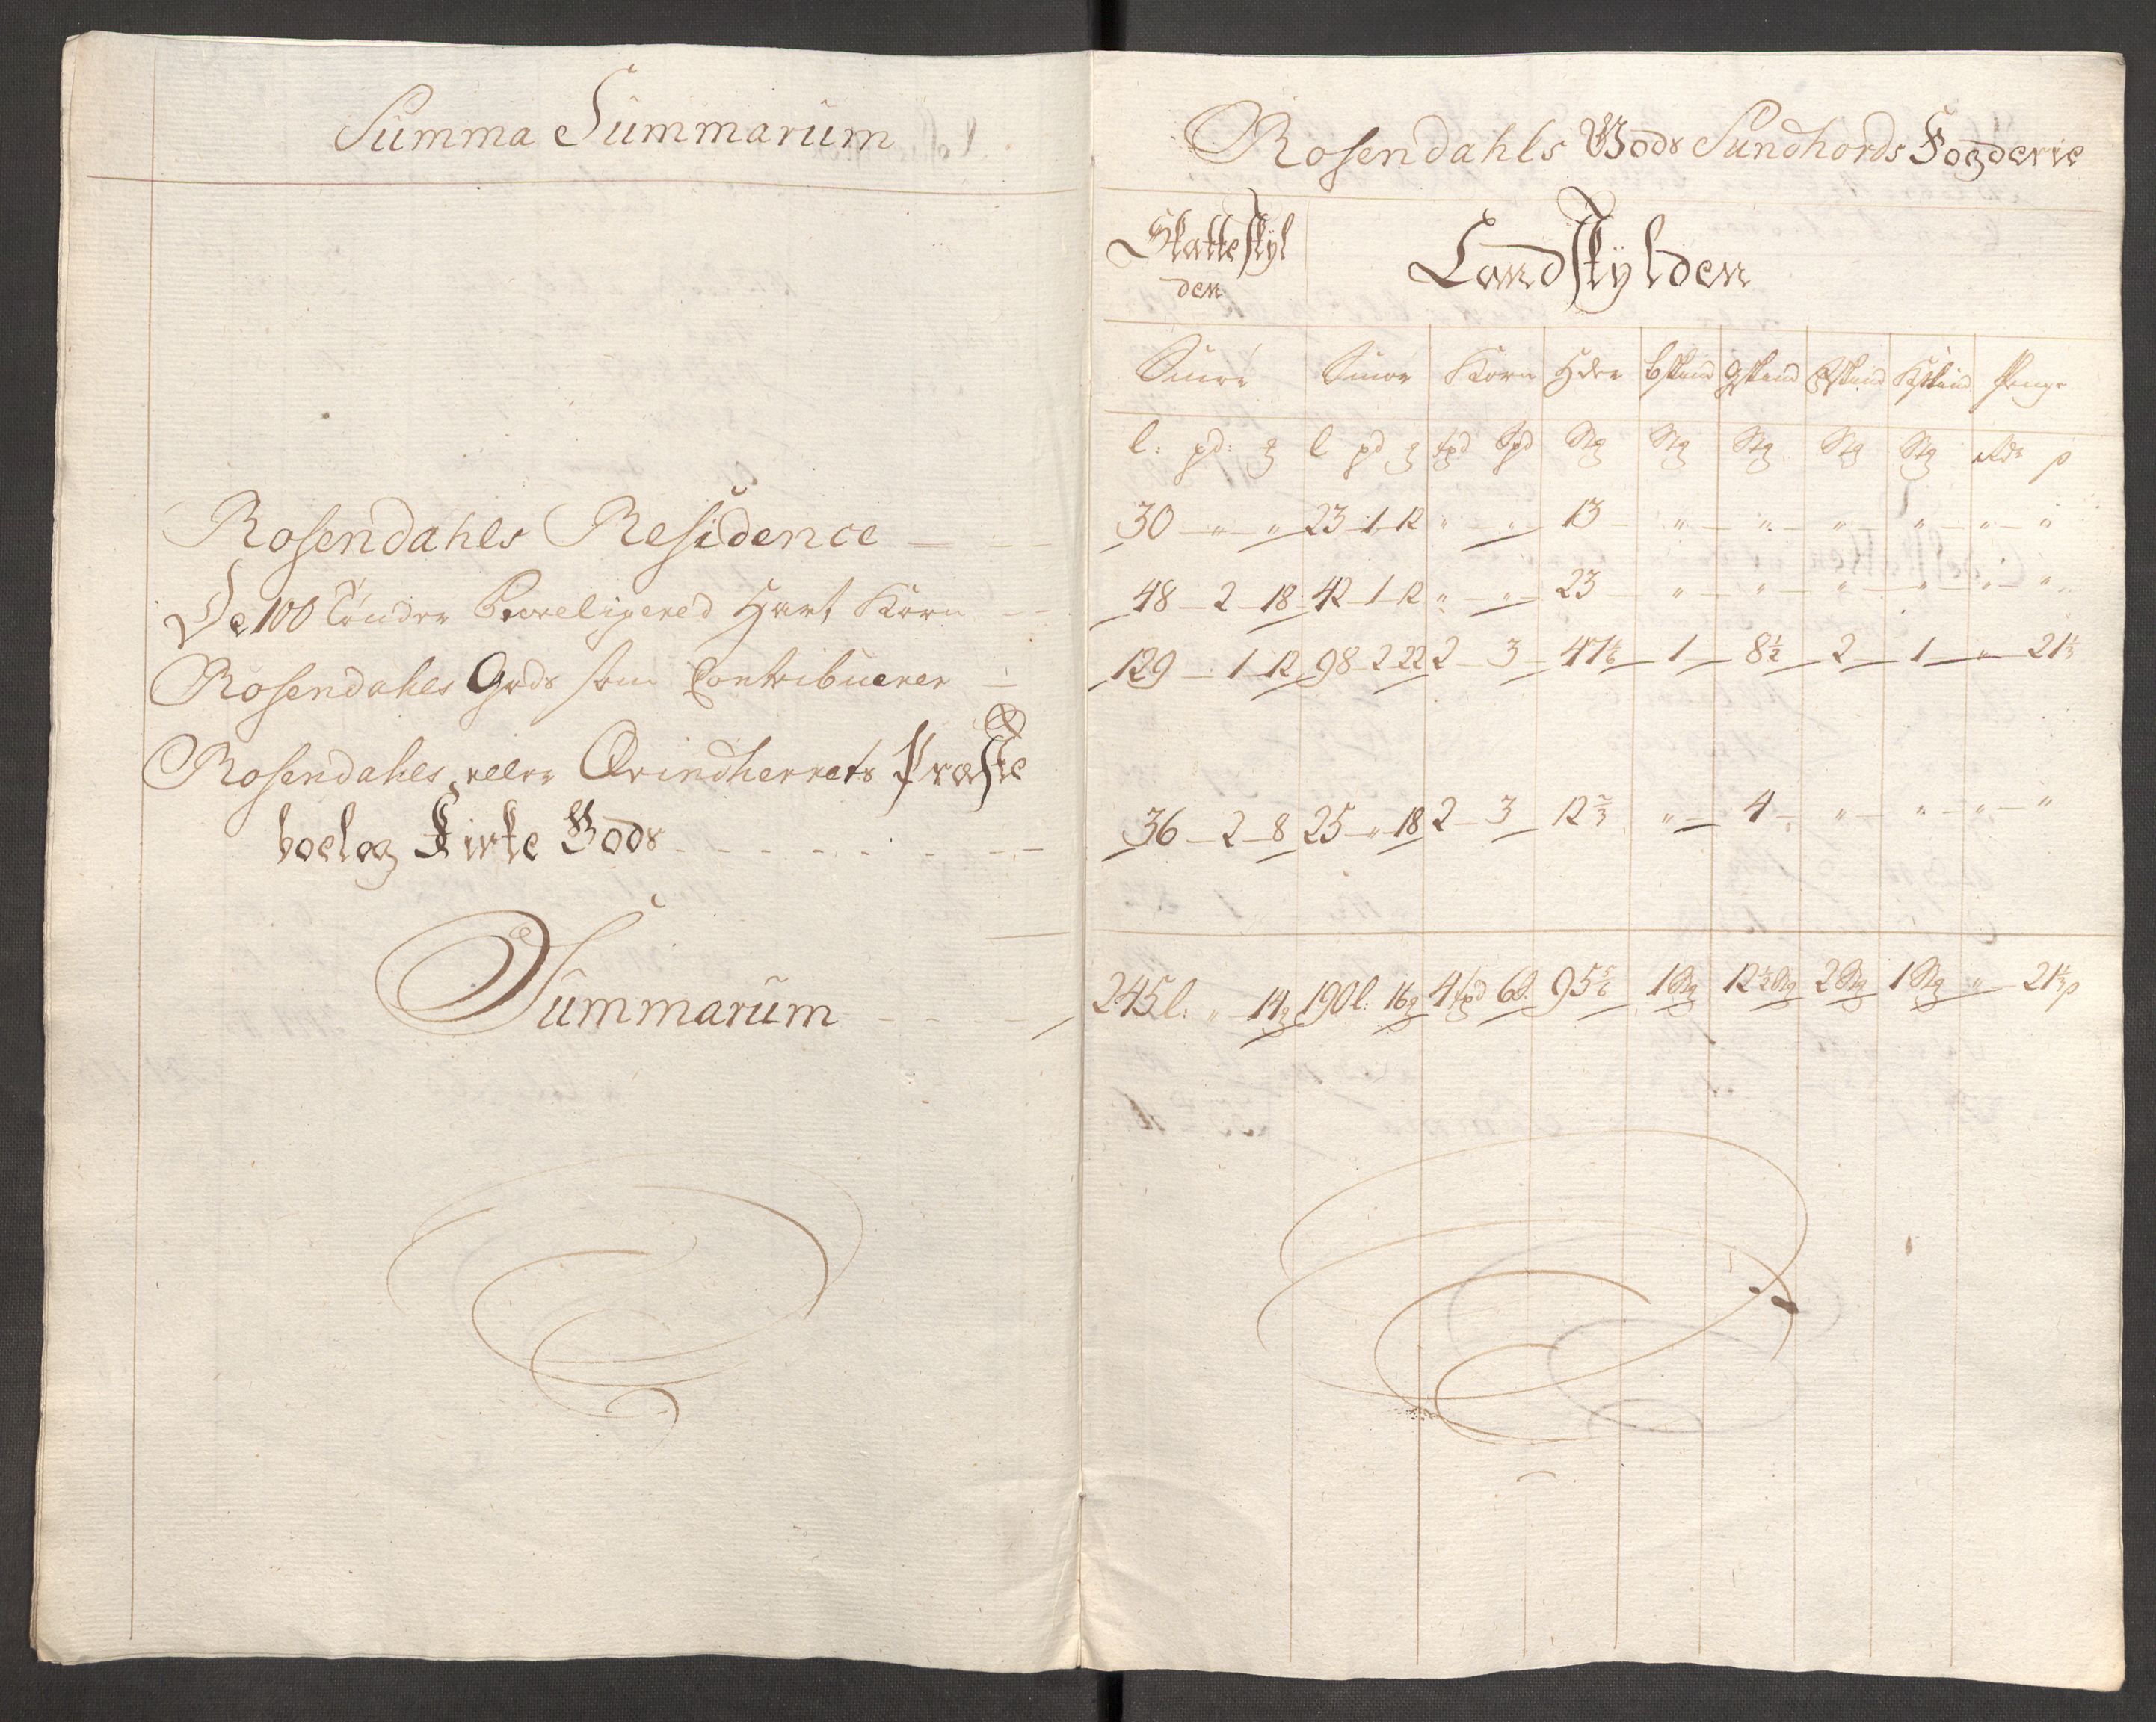 Summa Summarum
Rosendahls Residence
De 100 Tønder Hart Korn
Rosendahls Gods som Contribuerer
Rosendahls eller Qvindherrets Præste
boel og Kirke Gods
Summarum
Rosendahls Gods Sundhords Fogderie
Skatteskyl
den
Landskylden
Smør Smør Korn Hder bskind gskind Kskind Penge
l: pd: l pd Stg Stg Stg Stg Stg Rdr
30 " " 23 1 12 " " 13 " " " " " "
48 2 18 42 1 12 " " 23 " " " " " "
129 1 12 98 2 22 2 3 47 1/6 1 8 1/2 2 1 " 21 1/3
36 2 8 25 " 18 2 3 12 2/3 " 4 " " " "
245 l: " 14 190 l: 16 4 6 95 5/6 1 Stg 12 1/2 Stg 2 Stg 1 Stg " 21 1/3